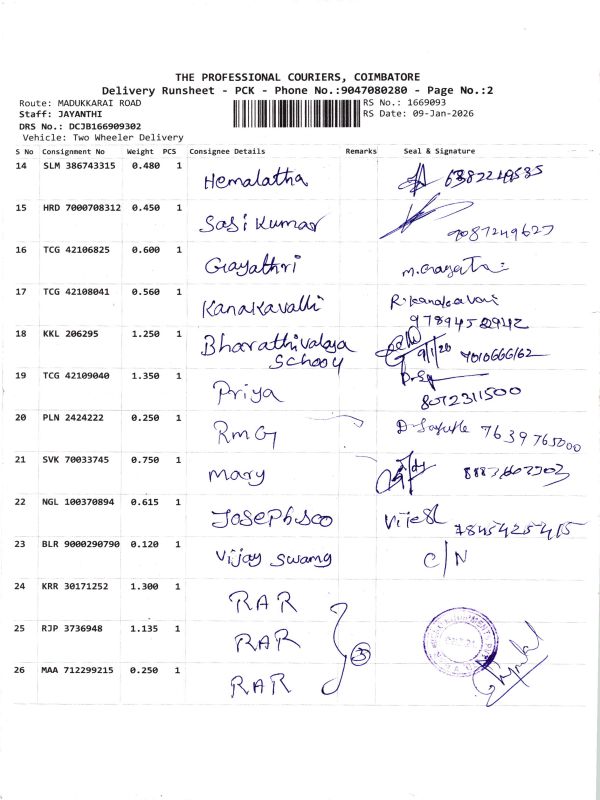 THE PROFESSIONAL COURIERS, COIMBATORE
Delivery Runsheet - PCK - Phone No.:9047080280 - Page No.:2
Route: MADUKKARAI ROAD RS No.: 1669093
Staff: JAYANTHI RS Date: 09-Jan-2026
DRS No.: DCJB166909302
Vehicle: Two Wheeler Delivery
S No Consignment No Weight PCS Consignee Details Remarks Seal & Signature
14 SLM 386743315 0.480 1 Hemalatha
15 HRD 7000708312 0.450 1 Sasi Kumar 9087249627
16 TCG 42106825 0.600 1 Gayathri
17 TCG 42108041 0.560 1 Kanakavalli
18 KKL 206295 1.250 1 Bharathivalaya School 9/1/26 7010666162
19 TCG 42109040 1.350 1 Priya 8072311500
20 PLN 2424222 0.250 1 RMG 7639765000
21 SVK 70033745 0.750 1 Mary
22 NGL 100370894 0.615 1 Josephsco 7845425415
23 BLR 9000290790 0.120 1 Vijay Swamy C/N
24 KRR 30171252 1.300 1 RAR
25 RJP 3736948 1.135 1 RAR 3
26 MAA 712299215 0.250 1 RAR